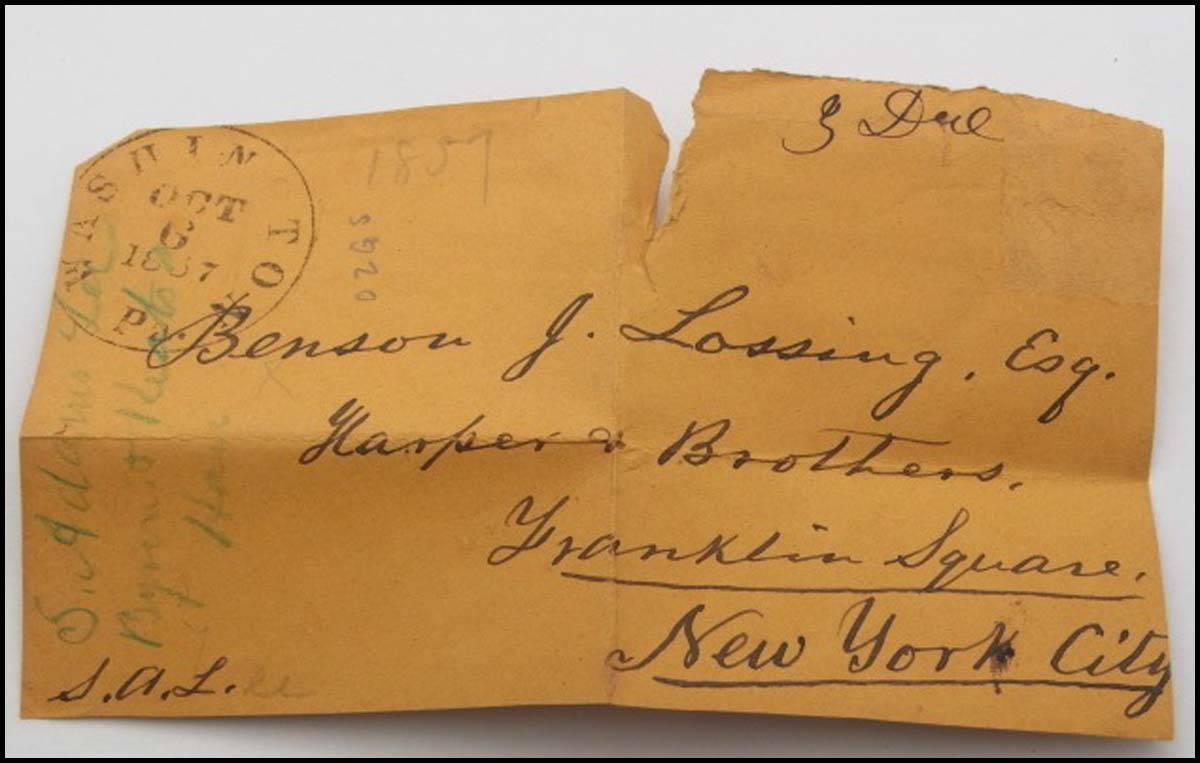 3 Due
WASHINGTON
OCT
6
1857
Pa.
1857
Benson J. Lossing, Esq.
Harper & Brothers,
Franklin Square.
New York City
S. Adams Lee
S.A.L.ee